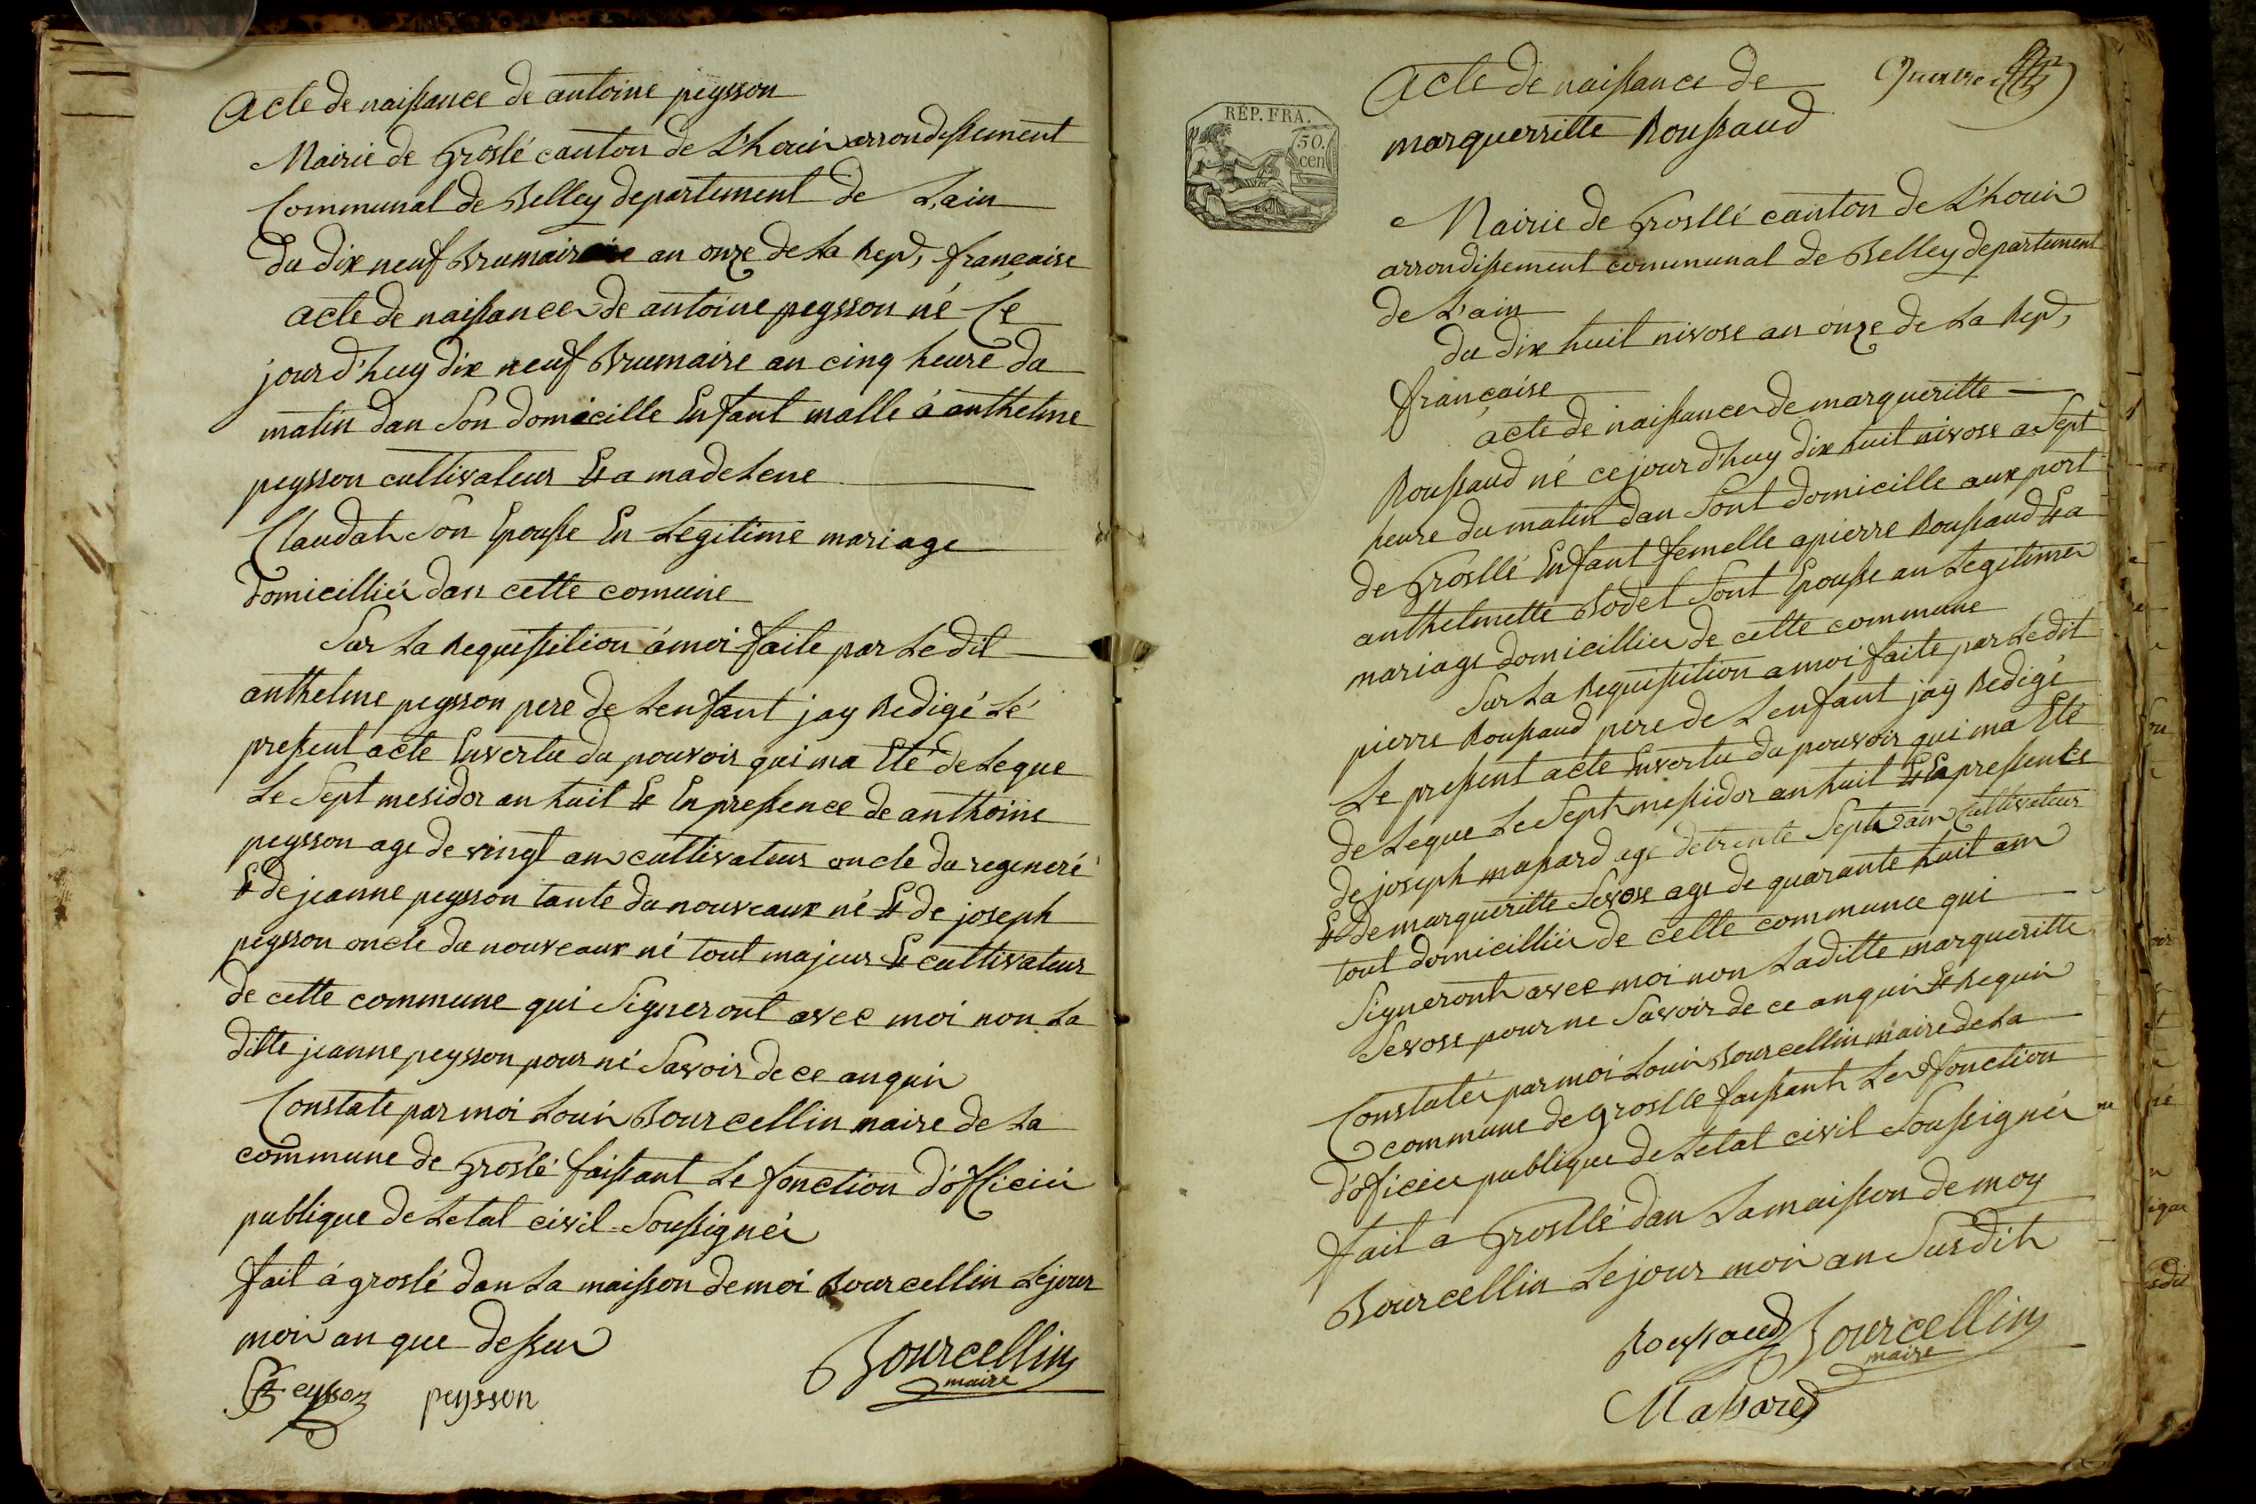 Acte de naissance de antoine peysson
Mairie de Groslé canton de L'houis arrondissement
Communal de Belley departement de L'ain
du dix neuf Brumaire an onze de La Rep, française
acte de naissance de antoine peysson né Ce
jourd'huy dix neuf Brumaire an cinq heure du
matin dan Son domicille Enfant malle á anthelme
peysson cultivateur Et a madelene
Claudat Son Epousse En Legitime mariage
domicilliés dan cette comune
Sur La Requissition á moi faite par Le dit
anthelme peysson pere de Lenfant jay Redigé Le
pressent acte Envertu du pouvoir qui ma Eté deLegue
Le Sept mesidor an huit Et En pressence de anthoine
peysson age de vingt ans cultivateur oncle du regeneré
Et de jeanne peysson tante du nouveaux né Et de joseph
peysson oncle du nouveaux né tout majeur Et cultivateur
de cette commune qui Signeront avec moi non La
ditte jeanne peysson pour né Savoir de ce anquis
Constate par moi Louis Bourcellin maire de La
commune de Groslé faissant Le fonction d'officié
publique de Letat civil Soussignés
fait á groslé dan La maisson de moi Bourcellin Le jour
mois an que dessus
Peysson peysson Bourcellin
maire
Acte de naissance de
marguerritte Roussaud
RÉP. FRA.
50.
cen
Mairie de Grosllé canton de L'houis
arrondissement communal de Belley departement
de L'ain
du dix huit nivose an onze de La Rep,
française
acte de naissance de margueritte
Roussaud né ce jourd'huy dix huit nivose a Sept
heure du matin dan Sont domicille aux port
de Grosllé Enfant femelle a pierre Roussaud Et a
anthelmette Bodet Sont Epousse an Legitime
mariage domicilliés de cette commune
Sur La Requissition a moi faite par Le dit
pierre Roussaud pere de Lenfant jaÿ Redigé
Le pressent acte Envertu du pouvoir qui ma Eté
de Legue Le Sept messidor an huit Et En pressence
de joseph massard age de trente Sept ans Cultivateur
Et de margueritte Sevose age de quarante huit ans
tout domicilliés de cette commune qui
Signeront avec moi non La ditte margueritte
Sevose pour ne Savoir de ce anquis Et Requis
Constatés par moi Louis Bourcellin maire de La
commune de Groslle faissant Les fonction
d'oficier publique de Letat civil Soussignés
fait a Grosllé dan La maisson de moy
Bourcellin Le jour mois an Susdit
Roussaud Bourcellin
maire
Massard